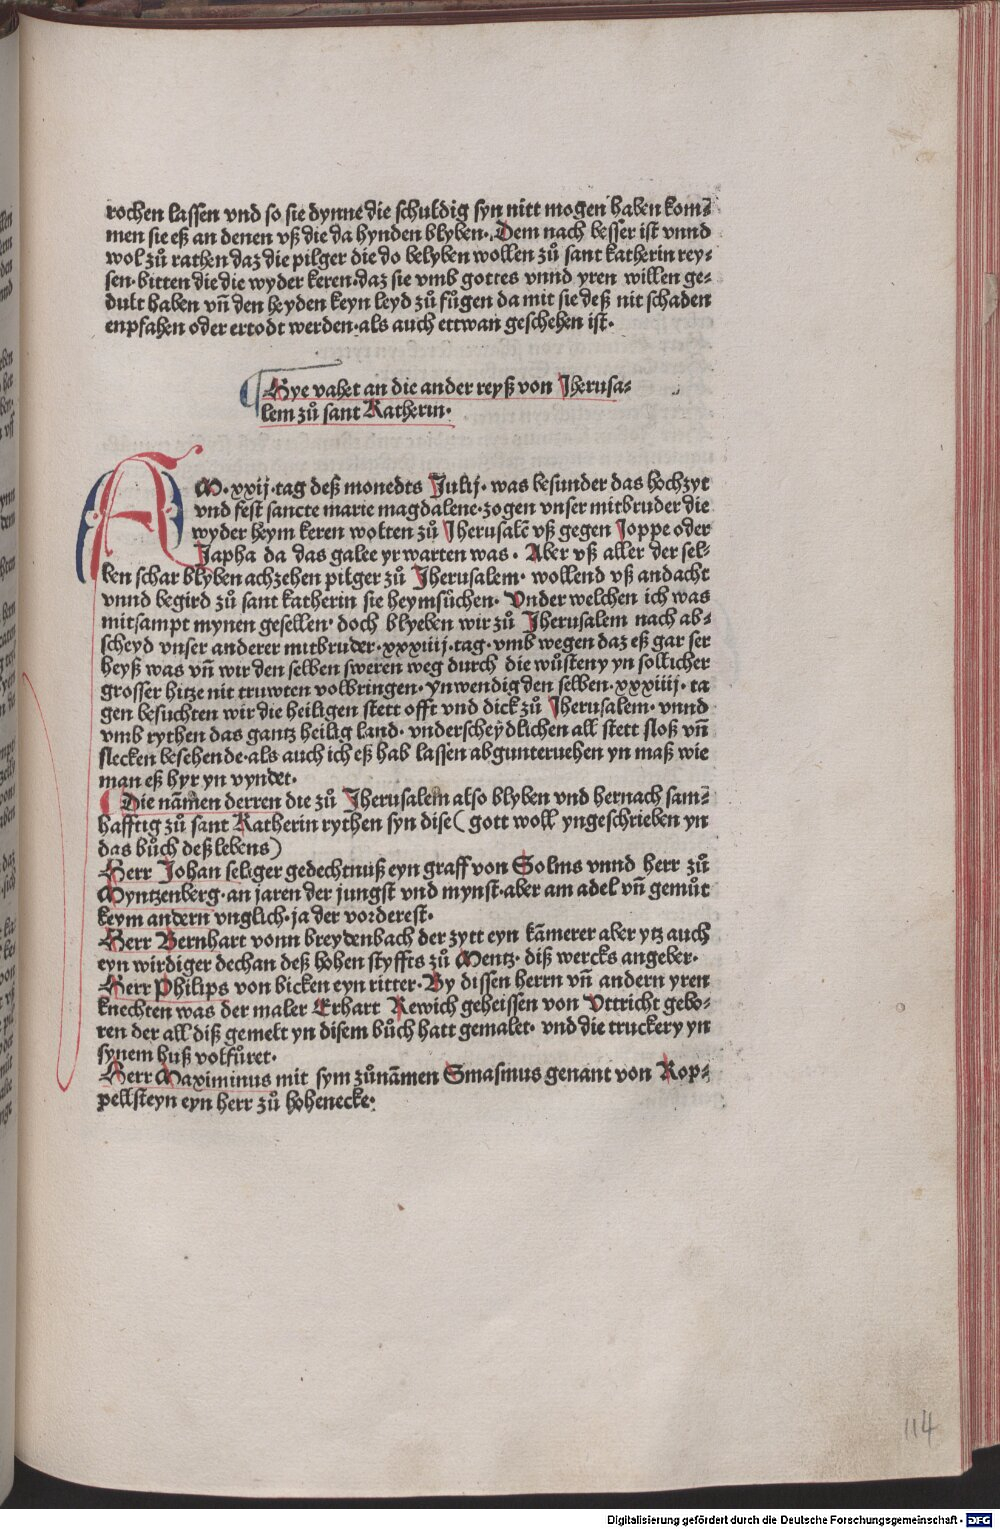 rochen lassen vnd so sie dynne die schuldig syn nitt mogen haben kom⸗
men sie eß an denen vß die da hynden blyben. Dem nach besser ist vnnd
wol zů rathen daz die pilger die do belyben wollen zů sant katherin rey⸗
sen. bitten die die wyder keren. daz sie vmb gottes vnnd yren willen ge⸗
dult haben vñ den heyden keyn leyd zů fůgen da mit sie deß nit schaden
enpfahen oder ertodt werden. als auch ettwan geschehen ist.
Hye vahet an die ander reyß von Jherusa⸗
lem zů sant Katherin.
AM. xxij. tag deß monedts Julij. was besunder das hochzyt
vnd fest sancte marie magdalene. zogen vnser mitbruder die
wyder heym keren wolten zů Jherusalē vß gegen Joppe oder
Japha da das galee yr warten was. Aber vß aller der sel⸗
ben schar blyben achzehen pilger zů Jherusalem. wollend vß andacht
vnnd begird zů sant katherin sie heymsůchen. Vnder welchen ich was
mitsampt mynen gesellen. doch blyeben wir zů Jherusalem nach ab⸗
scheyd vnser anderer mitbruder. xxxiiij. tag. vmb wegen daz eß gar ser
heyß was vñ wir den selben sweren weg durch die wůsteny yn sollicher
grosser hitze nit truwten volbringen. ynwendig den selben. xxxiiij. ta
gen besuchten wir die heiligen stett offt vnd dick zů Jherusalem. vnnd
vmb rythen das gantz heilig land. vnderscheydlichen all stett sloß vñ
flecken besehende. als auch ich eß hab lassen abgunteruehen yn maß wie
man eß hyr yn vyndet.
Die nāmen derren die zů Jherusalem also blyben vnd hernach sam⸗
hafftig zů sant Katherin rythen syn dise (gott woll yngeschrieben yn
das bůch deß lebens)
Herr Johan seliger gedechtnuß eyn graff von Solms vnnd herr zů
Myntzenberg. an jaren der jungst vnd mynst. aber am adel vñ gemůt
keym andern vnglich. ja der vorderest.
Herr Bernhart vonn breydenbach der zytt eyn kāmerer aber ytz auch
eyn wirdiger dechan deß hohen styffts zů Mentz. diß wercks angeber.
Herr Philips von bicken eyn ritter. By dissen herrn vñ andern yren
knechten was der maler Erhart Rewich geheissen von Vttricht gebo⸗
ren der all diß gemelt yn disem bůch hatt gemalet. vnd die truckery yn
synem huß volfůret.
Herr Maximinus mit sym zůnāmen Smasmus genant von Rop⸗
pellsteyn eyn herr zů hohenecke.
114
Digitalisierung gefördert durch die Deutsche Forschungsgemeinschaft - DFG